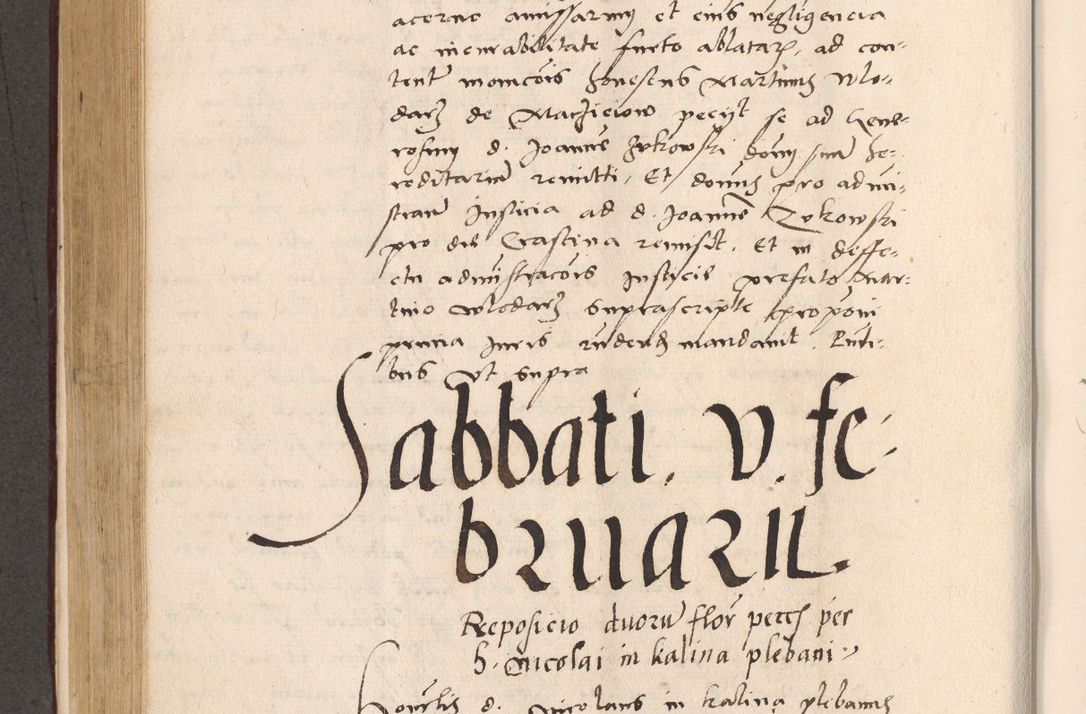 acerno amissarum et eius negligencia
ac incurabilitate furto ablatarum, ad con-
tent monicois honestus Martinus Wlo-
darz de Maczieiow peciit se ad Gene-
rosum d. Joannem Zukowski dominum suum he-
reditarium remitti, Et dominus pro admi-
stran Justicia ad d. Joannem Zukowski
pro die Crastina remisit. Et in deffe-
ctu administracois Justicie prefato Mar-
tino Wlodarz suprascripte proponi
Juris mandavit.
bus vt supra
Sabbati . v . fe-
bruarii.
Reposicio duoru flor per
h. Nicolai in kalina plebani
d. Nicolaus in kalina plebanus